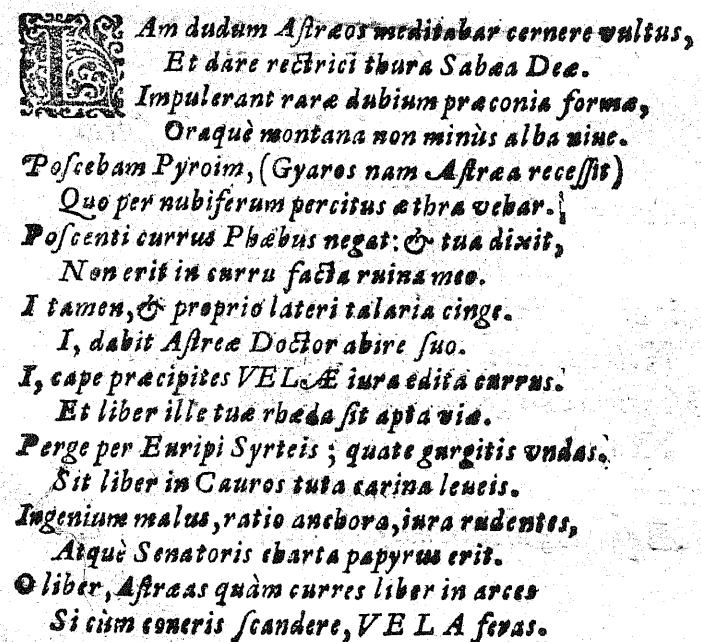 IAm dudum Aſtræos meditabar cernere vultus,
Et dare rectrici thura Sabæa Deæ.
Impulerant raræ dubium præconia formæ,
Oraquè montana non minùs alba niue.
Poſcebam Pyroim, (Gyaros nam Aſtræa receſſit)
Quo per nubiferum percitus æthra vebar.
Poſcenti currus Phæbus negat: & tua dixit,
Non erit in curru facta ruina meo.
I tamen, & proprio lateri talaria cinge.
I, dabit Aſtreæ Doctor abire ſuo.
I, cape præcipites VELÆ iura edita currus.
Et liber ille tuæ rhæda ſit apta viæ.
Perge per Euripi Syrteis ; quate gurgitis vndas.
Sit liber in Cauros tuta carina leueis.
Ingenium malus, ratio anchora, iura rudentes,
Atquè Senatoris charta papyrus erit.
O liber, Aſtræas quàm curres liber in arces
Si cùm coneris ſcandere, VELA feras.